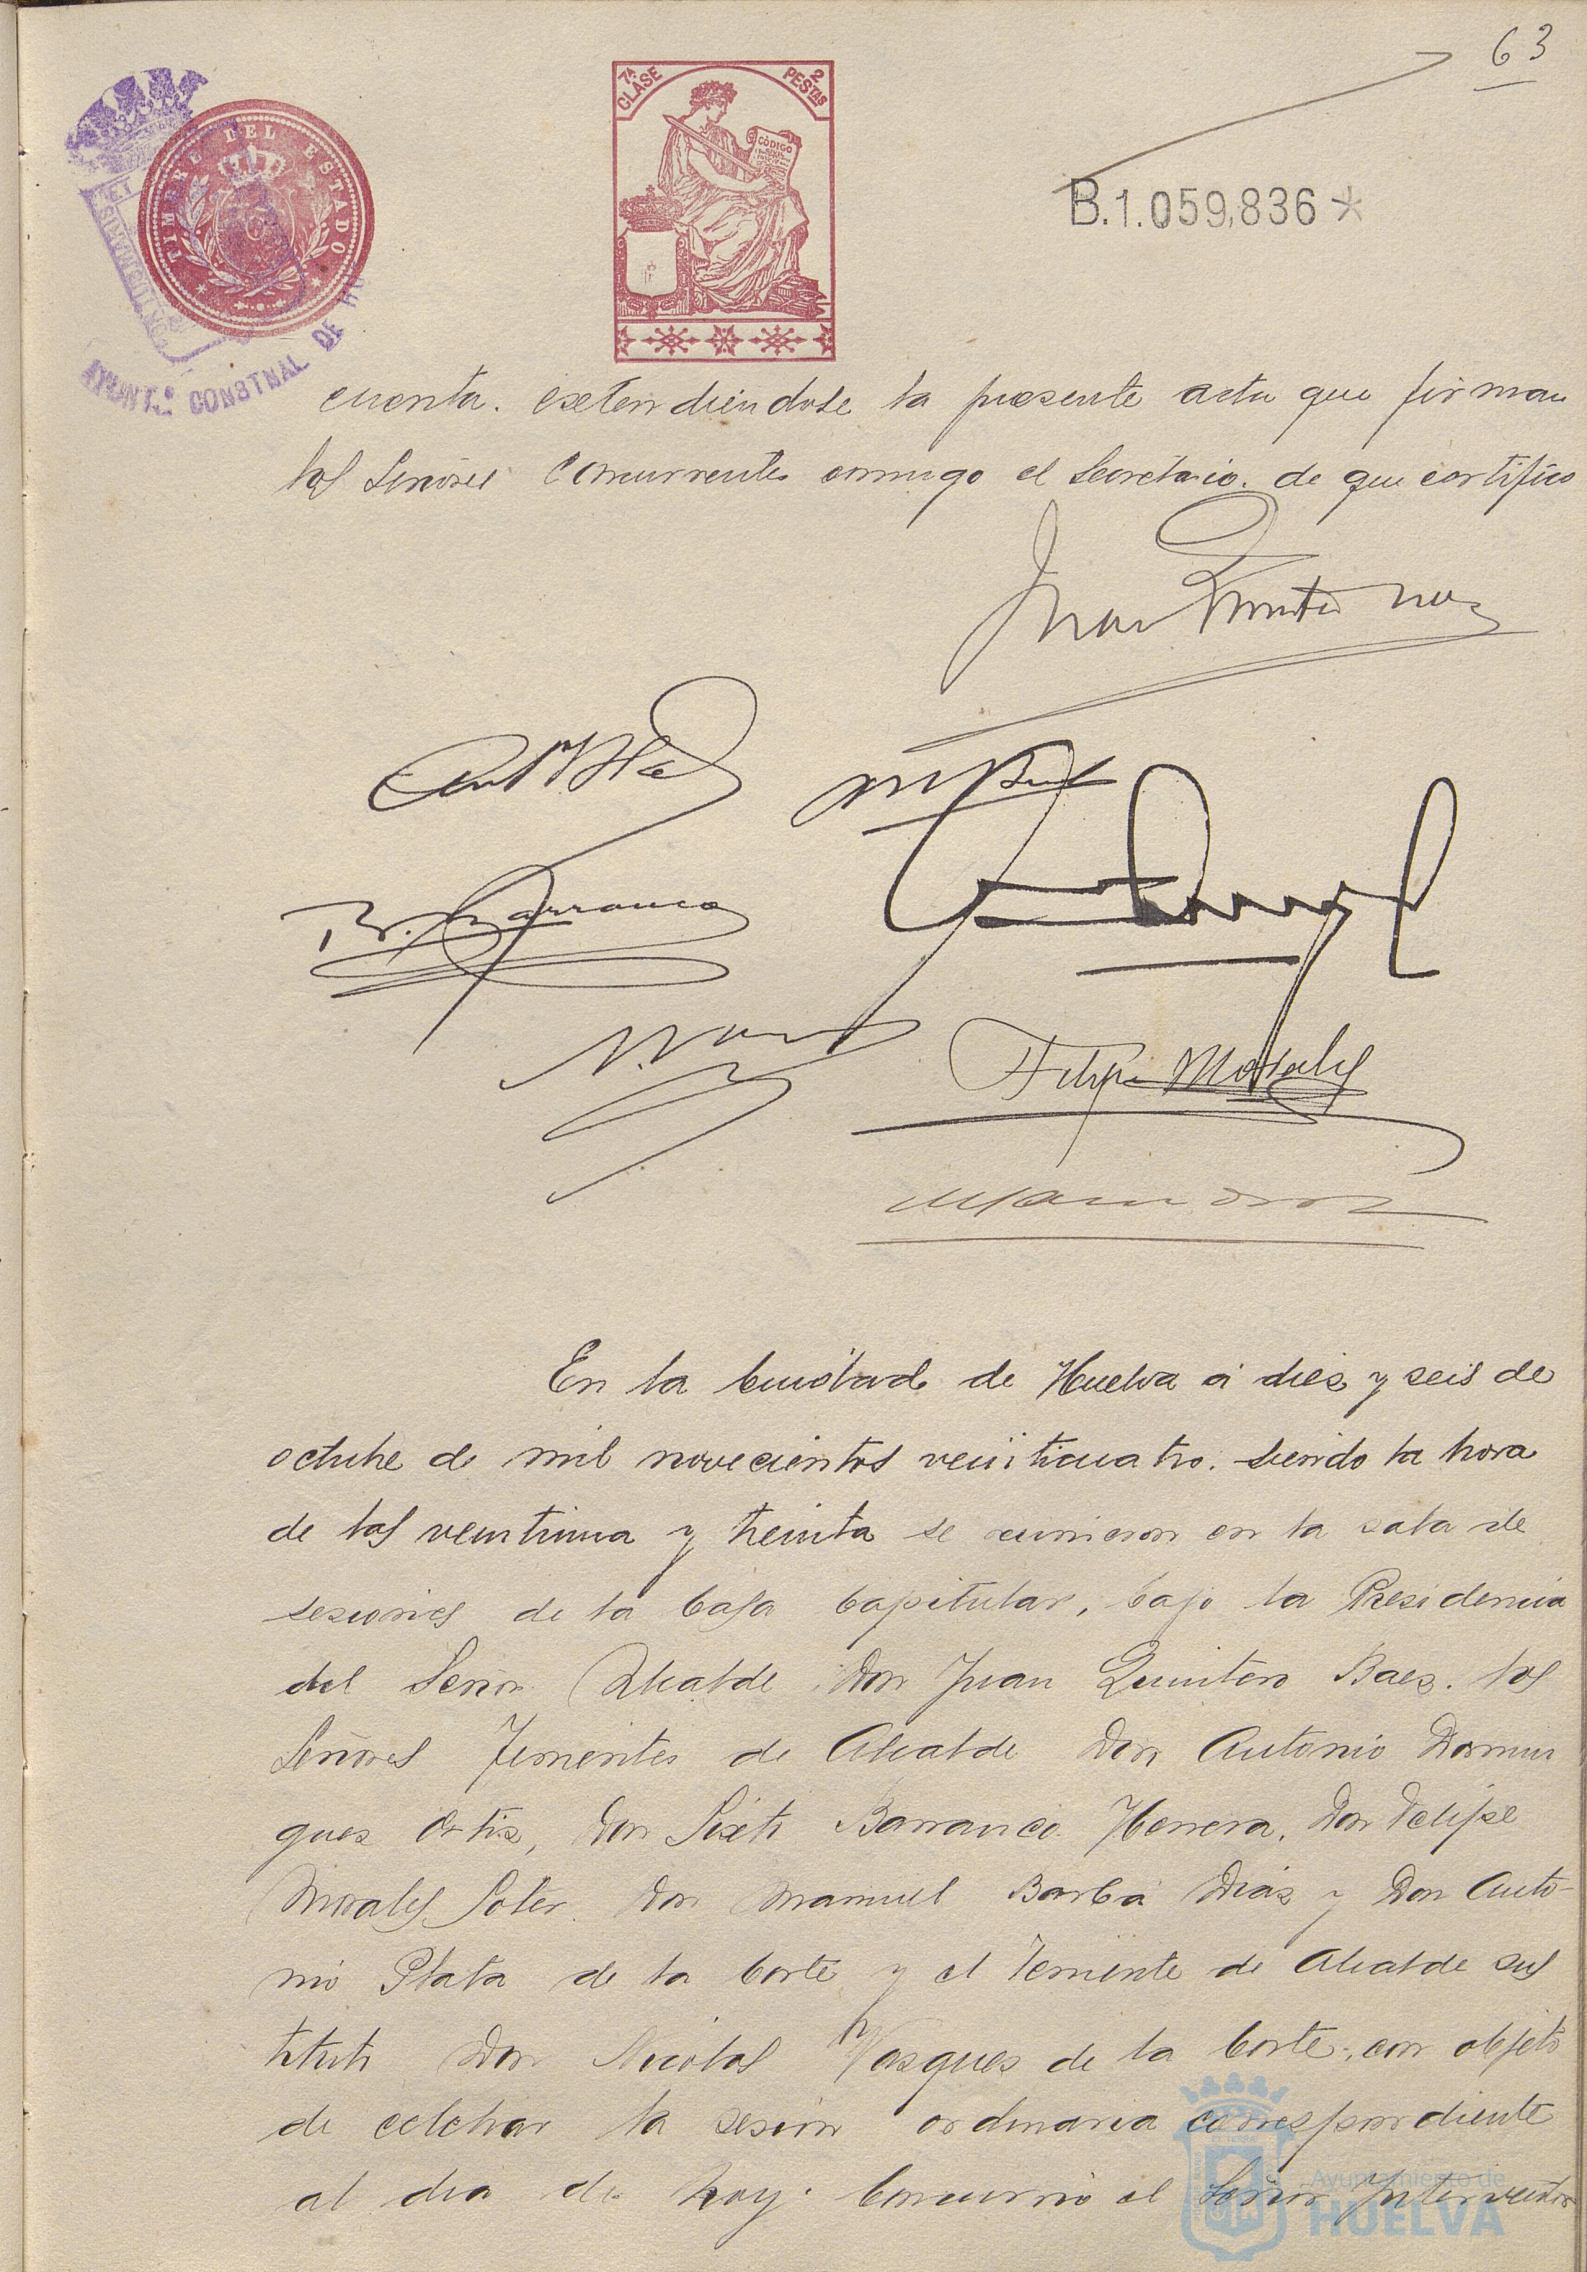 63
7ª CLASE 2 PESTAS
CÓDIGO
TIMBRE DEL ESTADO
B.1.059,836*
AYUNTº CONSTNAL DE H
cuenta. extendiéndose la presente acta que firman
los Señores concurrentes conmigo el Secretario. de que certifico
Juan Quintero Baez
B. Barranco
Felipe Morales
En la Ciudad de Huelva á diez y seis de
octubre de mil novecientos veinticuatro. siendo la hora
de las veintiuna y treinta se reunieron en la sala de
sesiones de la Casa Capitular, bajo la Presidencia
del Señor Alcalde Don Juan Quintero Baez. los
Señores Tenientes de Alcalde Don Antonio Domin
guez Ortiz, Don Sixto Barranco Herrera, Don Felipe
Morales Soter. Don Manuel Barba Diáz y Don Anto-
nio Plata de la Corte y el Teniente de Alcalde sus
tituto Don Nicolas Vazquez de la Corte, con objeto
de celebrar la sesión ordinaria correspondiente
al dia de hoy. Concurrió el Señor Interventor
Ayuntamiento de
HUELVA